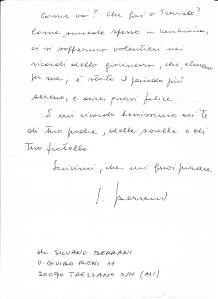 Come va? Che fai a Trieste?
Come succede spesso in vecchiaia,
ci si sofferma volentieri nei
ricordi della giovinezza, che, almeno
per me, è stato il periodo più
sereno, e direi quasi felice.
E mi ricordo benissimo di te
di tuo padre, delle sorelle e di
tuo fratello.
Scrivimi, che mi farai piacere
S.
dr. SILVANO
V. GUIDO RENI 11
20090 TREZZANO S/N (MI)